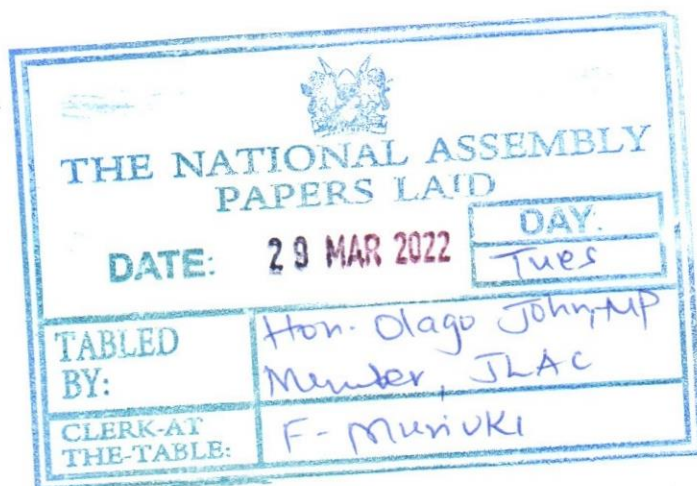 THE NATIONAL ASSEMBLY
PAPERS LAID
DATE: 29 MAR 2022
DAY:
Tues
TABLED
BY:
Hon. Olago John, MP
Member, JLAC
CLERK-AT
THE-TABLE:
F- Muriuki